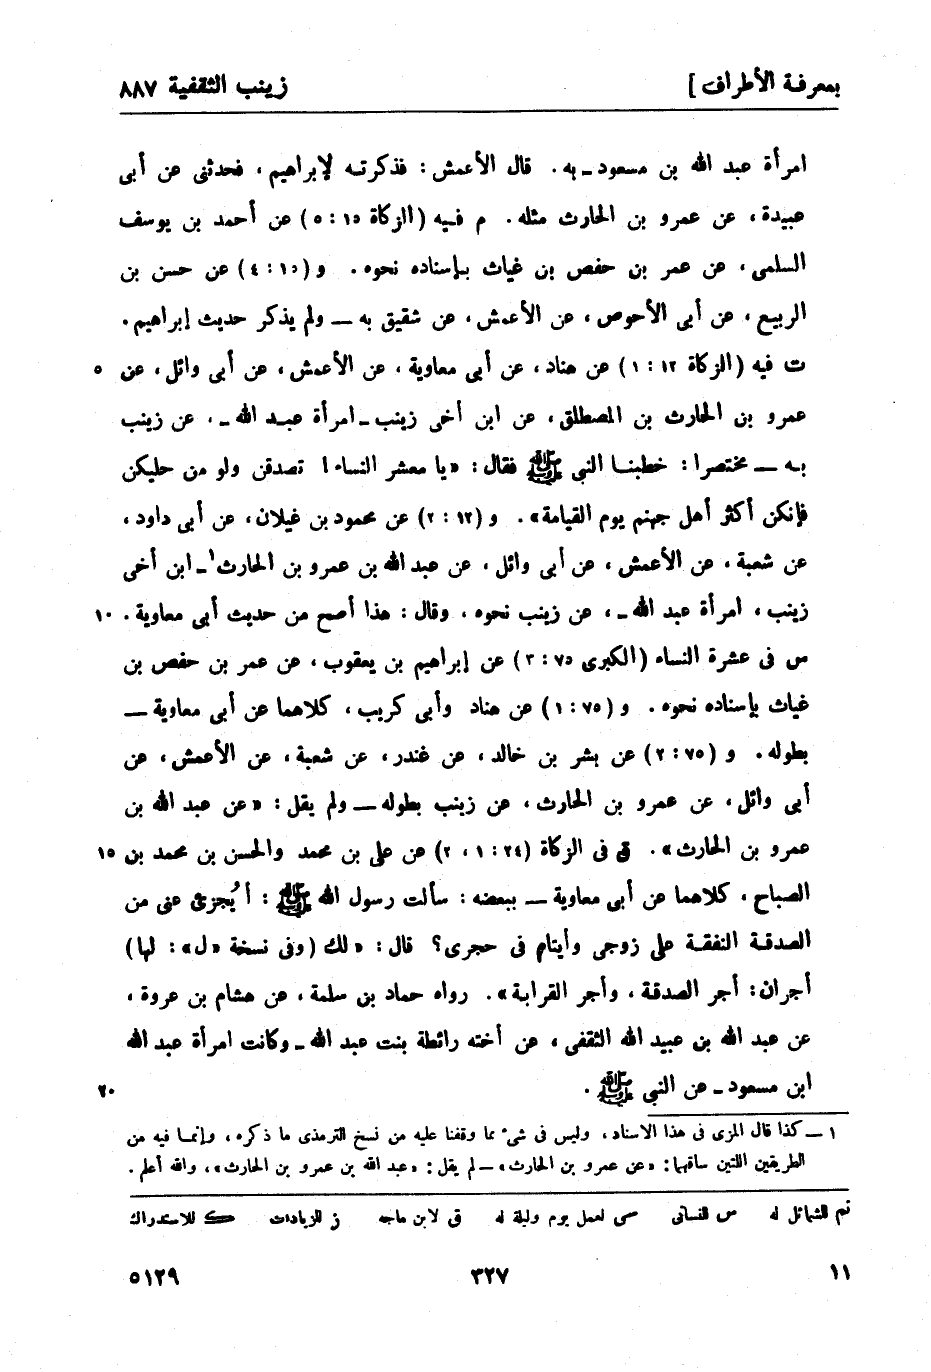 بمعرفة الأطراف ] زينب الثقفية ٨٨٧
امرأة عبد الله بن مسعود ـ به . قال الأعمش : فذكرته لإبراهيم ، فحدثنى عن أبى
عبيدة ، عن عمرو بن الحارث مثله . م فيه (الزكاة ١٥ : ٥) عن أحمد بن يوسف
السلمى ، عن عمر بن حفص بن غياث بإسناده نحوه . و (١٥ : ٤) عن حسن بن
الربيع ، عن أبى الأحوص ، عن الأعمش ، عن شقيق به — ولم يذكر حديث إبراهيم .
ت فيه (الزكاة ١٢ : ١) عن هناد ، عن أبى معاوية ، عن الأعمش ، عن أبى وائل ، عن ٥
عمرو بن الحارث بن المصطلق ، عن ابن أخى زينب ـ امرأة عبد الله ـ ، عن زينب
به — مختصرا : خطبنا النبى ﷺ فقال : «يا معشر النساء ! تصدقن ولو من حليكن
فإنكن أكثر أهل جهنم يوم القيامة» . و (١٢ : ٢) عن محمود بن غيلان ، عن أبى داود ،
عن شعبة ، عن الأعمش ، عن أبى وائل ، عن عبد الله بن عمرو بن الحارث١ ـ ابن أخى
زينب ، امرأة عبد الله ـ ، عن زينب نحوه ، وقال : هذا أصح من حديث أبى معاوية . ١٠
س فى عشرة النساء (الكبرى ٧٥ : ٣) عن إبراهيم بن يعقوب ، عن عمر بن حفص بن
غياث بإسناده نحوه . و (٧٥ : ١) عن هناد وأبى كريب ، كلاهما عن أبى معاوية —
بطوله . و (٧٥ : ٢) عن بشر بن خالد ، عن غندر ، عن شعبة ، عن الأعمش ، عن
أبى وائل ، عن عمرو بن الحارث ، عن زينب بطوله — ولم يقل : «عن عبد الله بن
عمرو بن الحارث» . ق فى الزكاة (٢٤ : ١ ، ٢) عن على بن محمد والحسن بن محمد بن ١٥
الصباح ، كلاهما عن أبى معاوية — ببعضه : سألت رسول الله ﷺ : أ يُجزئ عنى من
الصدقة النفقة على زوجى وأيتام فى حجرى ؟ قال : «لك (وفى نسخة «ل» : لها)
أجران : أجر الصدقة ، وأجر القرابة» . رواه حماد بن سلمة ، عن هشام بن عروة ،
عن عبد الله بن عبيد الله الثقفى ، عن أخته رائطة بنت عبد الله ـ وكانت امرأة عبد الله
ابن مسعود ـ عن النبى ﷺ . ٢٠
١ — كذا قال المزى فى هذا الاسناد ، وليس فى شئ مما وقفنا عليه من نسخ الترمذى ما ذكره ، وإنما فيه من
الطريقين اللتين ساقهما : «عن عمرو بن الحارث» — لم يقل : «عبد الله بن عمرو بن الحارث» ، والله أعلم .
تم للشمائل له س للنسائى سى لعمل يوم وليلة له ق لابن ماجه ز للزيادات ك للاستدراك
١١ ٣٢٧ ٥١٢٩